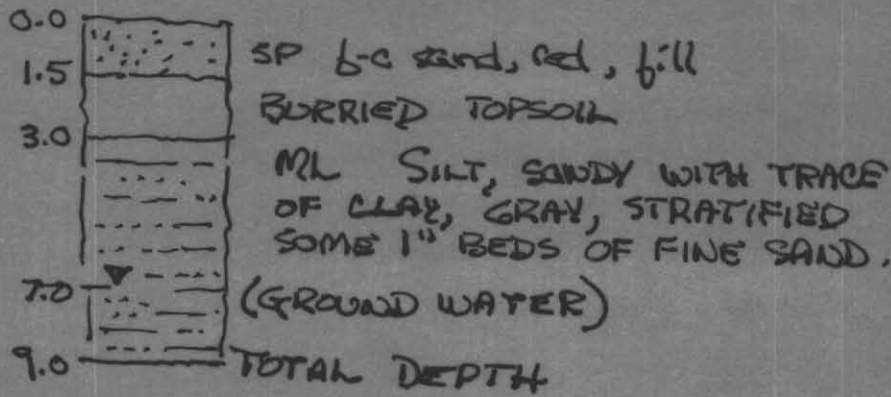 0.0
SP f-c sand, red, fill
1.5
BURRIED TOPSOIL
3.0
ML SILT, SANDY WITH TRACE
OF CLAY, GRAY, STRATIFIED
SOME 1" BEDS OF FINE SAND.
7.0 (GROUND WATER)
9.0 TOTAL DEPTH